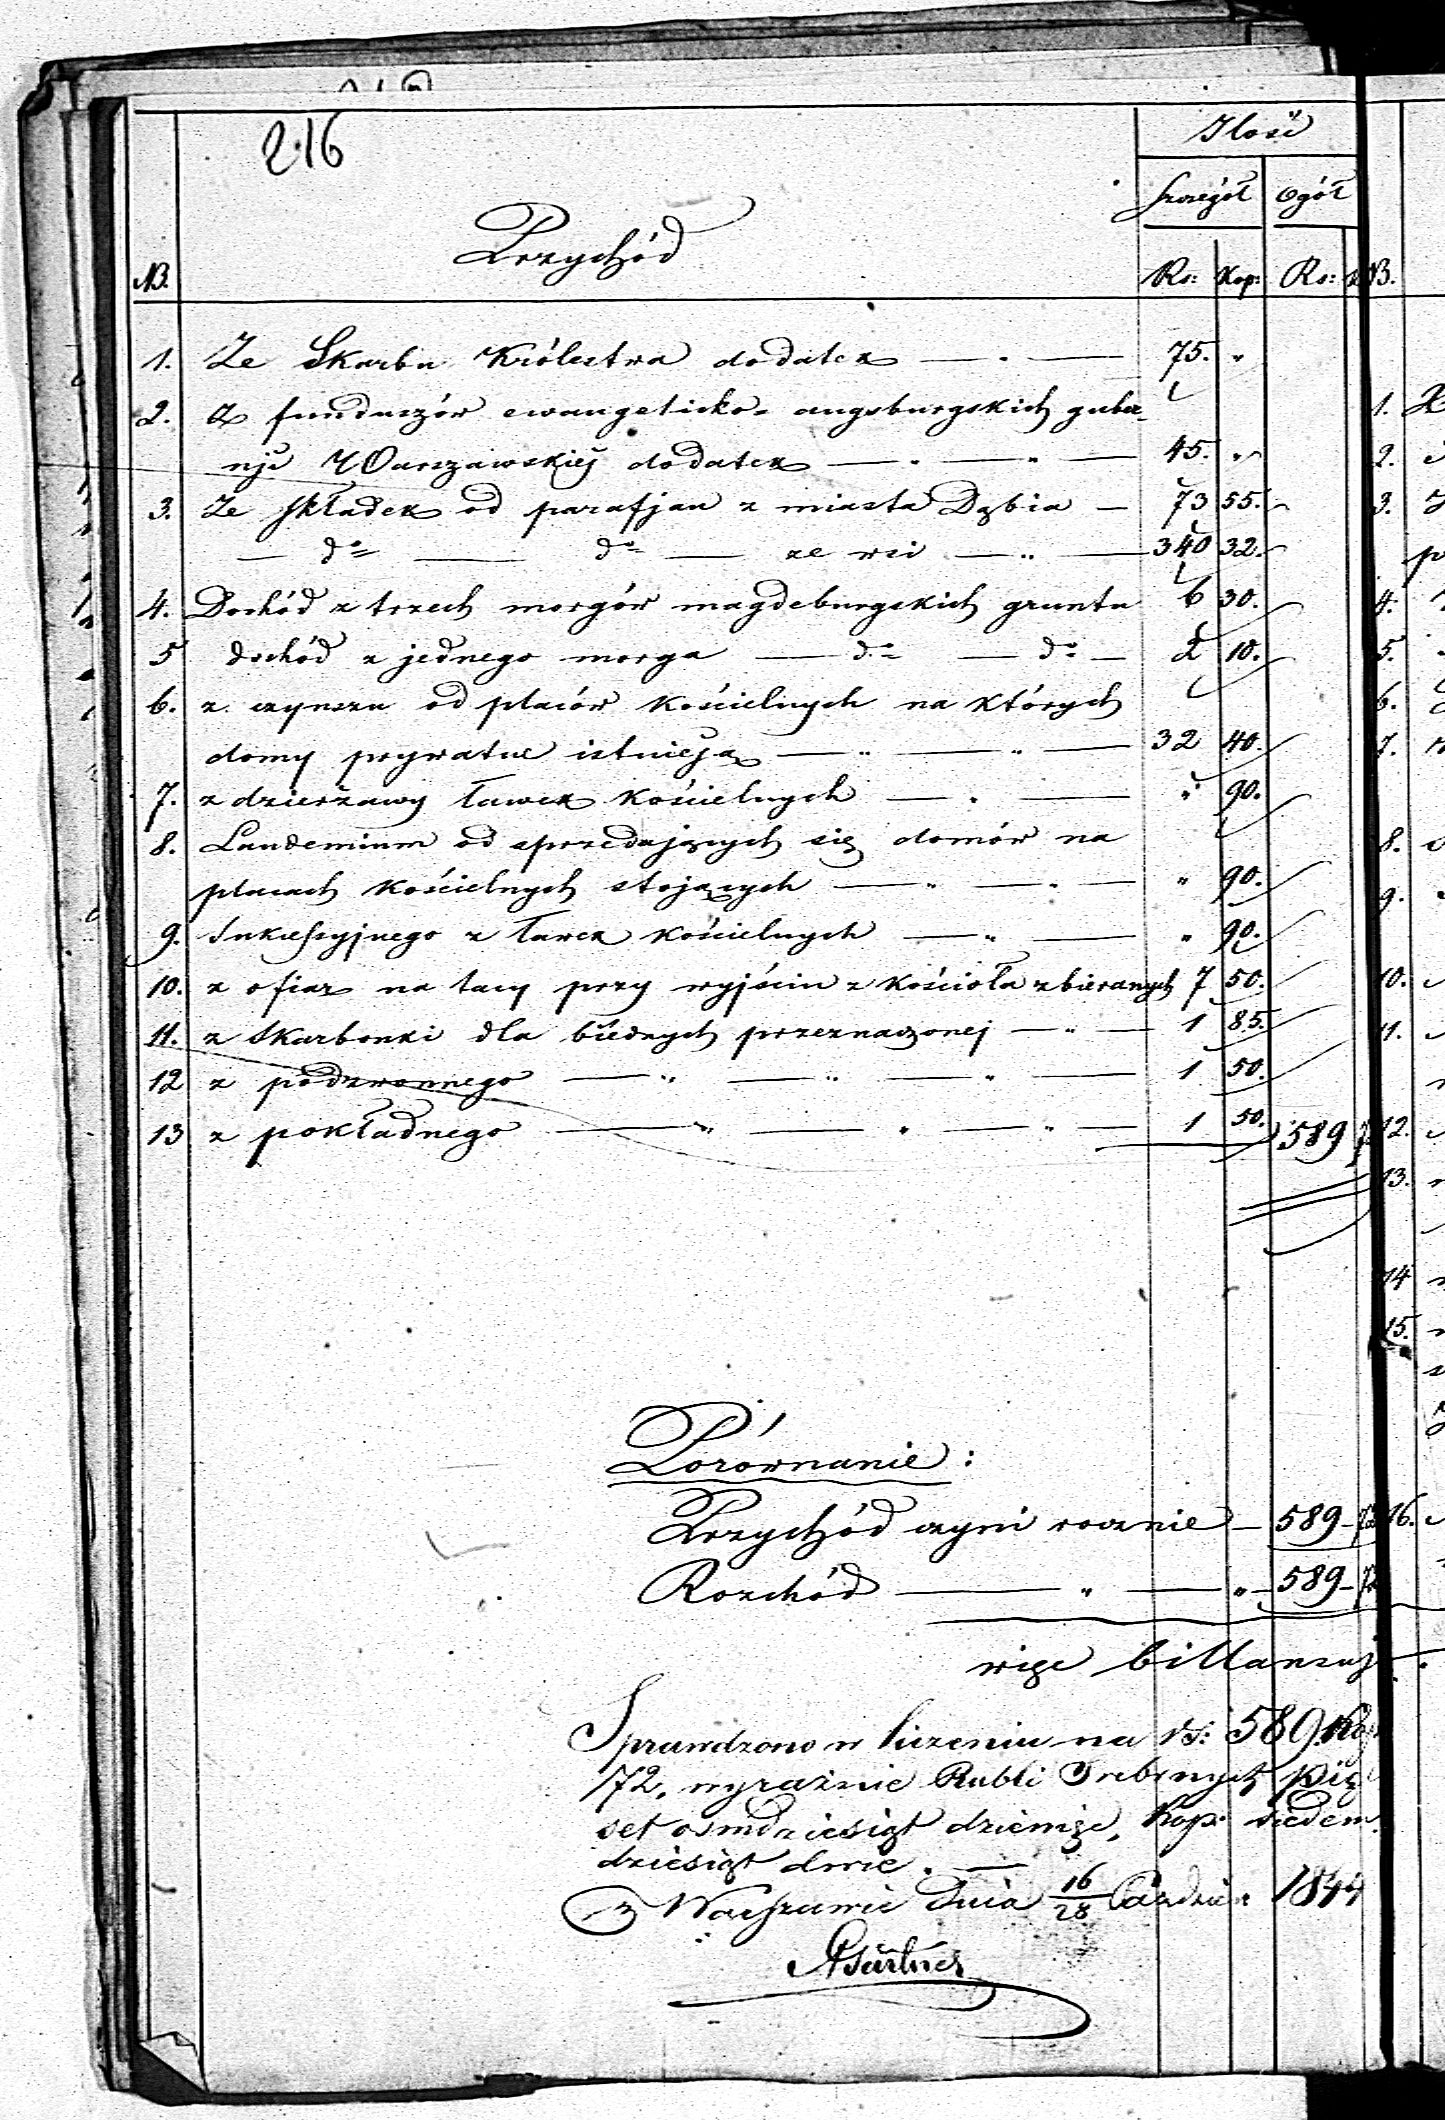 216
Ilość
Szczegół Ogół
Przychód
NB. Rs: Kop: Rs:
1. Ze Skarbu Królestwa dodatek — " — 75. "
2. Z funduszów ewangelicko-augsburgskich guber-
nji Warszawskiej dodatek — " — " — 45. "
3. Ze składek od parafjan z miasta Dąbia — 73 55.
— do — do — ze wsi — " — 340 32.
4. Dochód z trzech morgów magdeburgskich gruntu 6 30.
5 dochód z jednego morga — do — do — 2 10.
6. z czynszu od placów kościelnych na których
domy prywatne istnieją — " — " — 32 40.
7. z dzierżawy ławek kościelnych — " — " 90.
8. Laudemium od sprzedających się domów na
placach kościelnych stojących — " — " — " 90.
9. Inkwessyjnego z ławek kościelnych — " — " 90.
10. z ofiar na tacy przy wyjściu z kościoła zbieranych 7 50.
11. z Skarbonki dla biednych przeznaczonej — " — 1 85.
12 z podzwonnego — " — " — " — 1 50.
13 z pokładnego — " — " — " — 1 50. 589 72
Porównanie:
Przychód czyni rocznie — 589 - 72
Rozchód — " — " — 589 - 72
więc billansuj
Sprawdzono w liczeniu na rs: 589. Kop
72, wyraźnie Rubli Srebrnych pięć
set osmdziesiąt dziewięć, Kop: siedem
dziesiąt dwie. —
w Warszawie dnia 16/28 Paździer 1844
NB.
1.
2.
3.
4.
5.
6.
7.
8.
9.
10.
11.
12.
13.
14
15.
16.